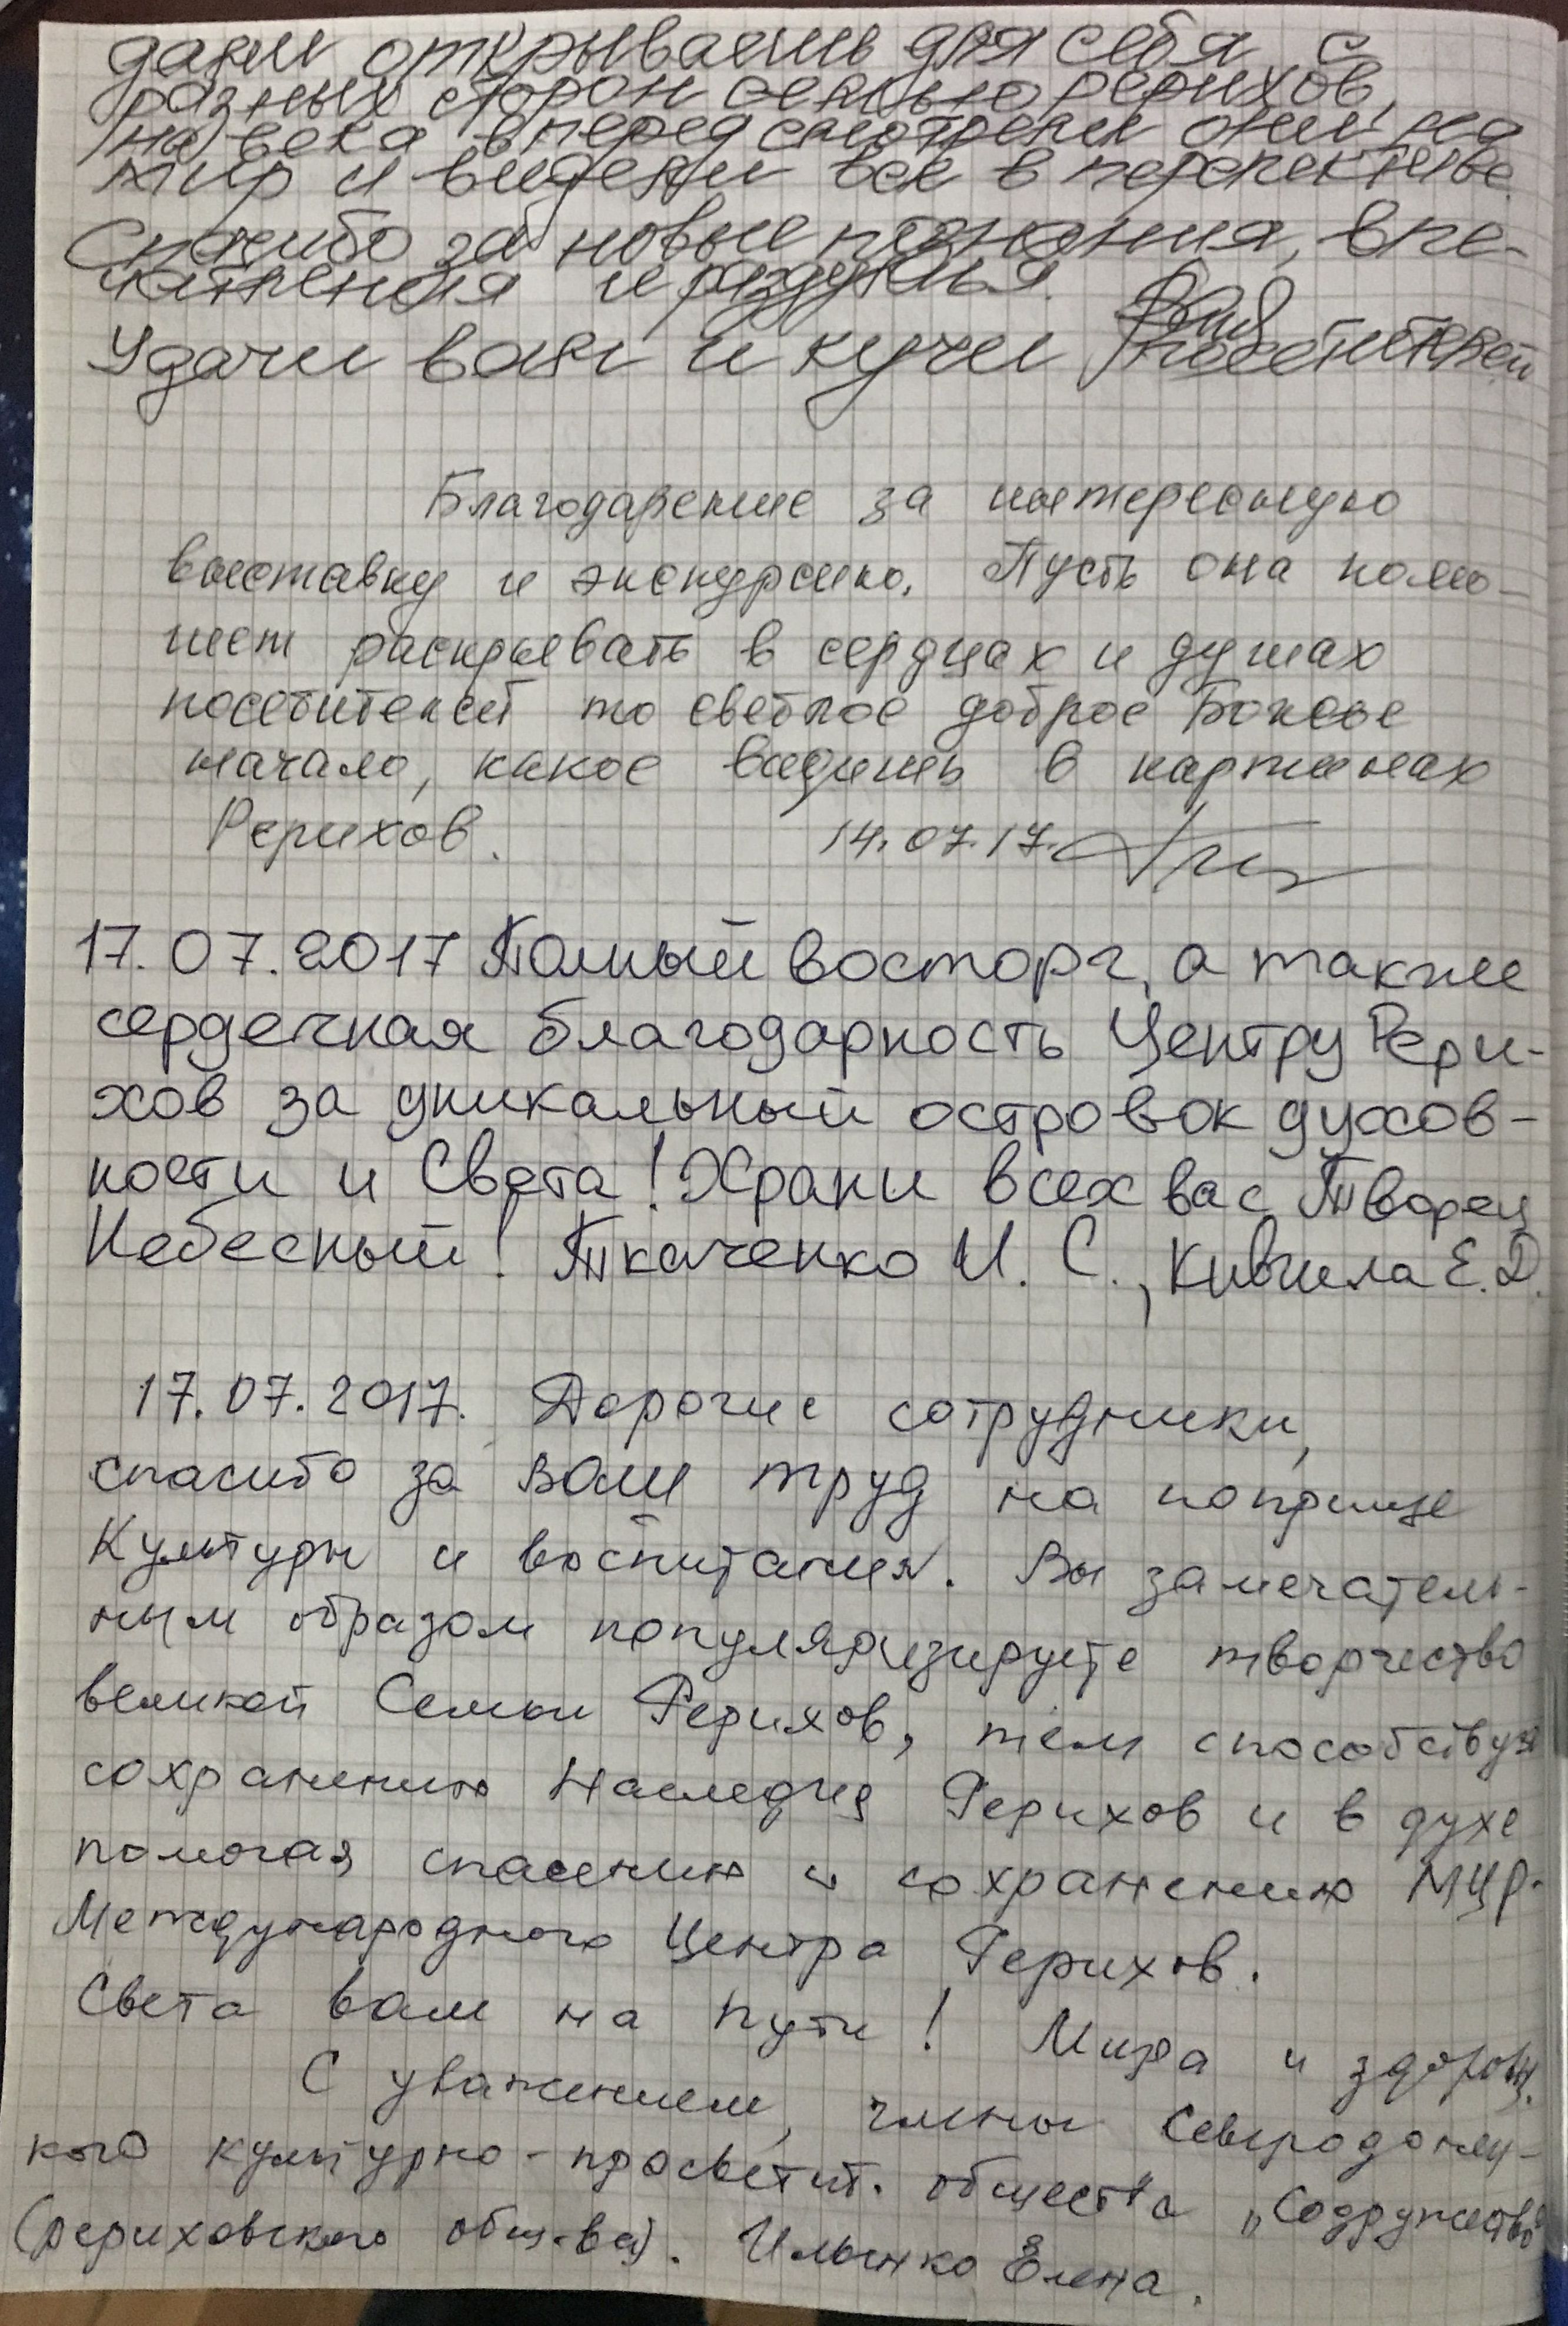 дали открываешь для себя с
разных сторон семью Рерихов,
на века вперед смотрели они на
мир и видели все в перспективе.
Спасибо за новые познания, впе-
чатления и раздумья.
Удачи вам и кучи посетителей
Благодарение за интересную
выставку и экскурсию. Пусть она помо-
жет раскрывать в сердцах и душах
посетителей то светлое доброе Божье
начало, какое видишь в картинах
Рерихов. 14.07.17.
17.07.2017 Полный восторг, а также
сердечная благодарность Центру Рери-
хов за уникальный островок духов-
ности и Света! Храни всех вас Творец
Небесный! Ткаченко И. С., Е.Д.
17.07.2017. Дорогие сотрудники,
спасибо за ваш труд на поприще
Культуры и воспитания. Вы замечатель-
ным образом популяризируете творчество
великой Семьи Рерихов, тем способствуя
сохранению Наследия Рерихов и в духе
помогая спасению и сохранению МЦР-
Международного Центра Рерихов.
Света вам на пути! Мира и здоровья.
С уважением, члены Северодонец-
кого культурно-просветит. общества „Содружество"
(рериховского общ-ва). Ильенко Елена.